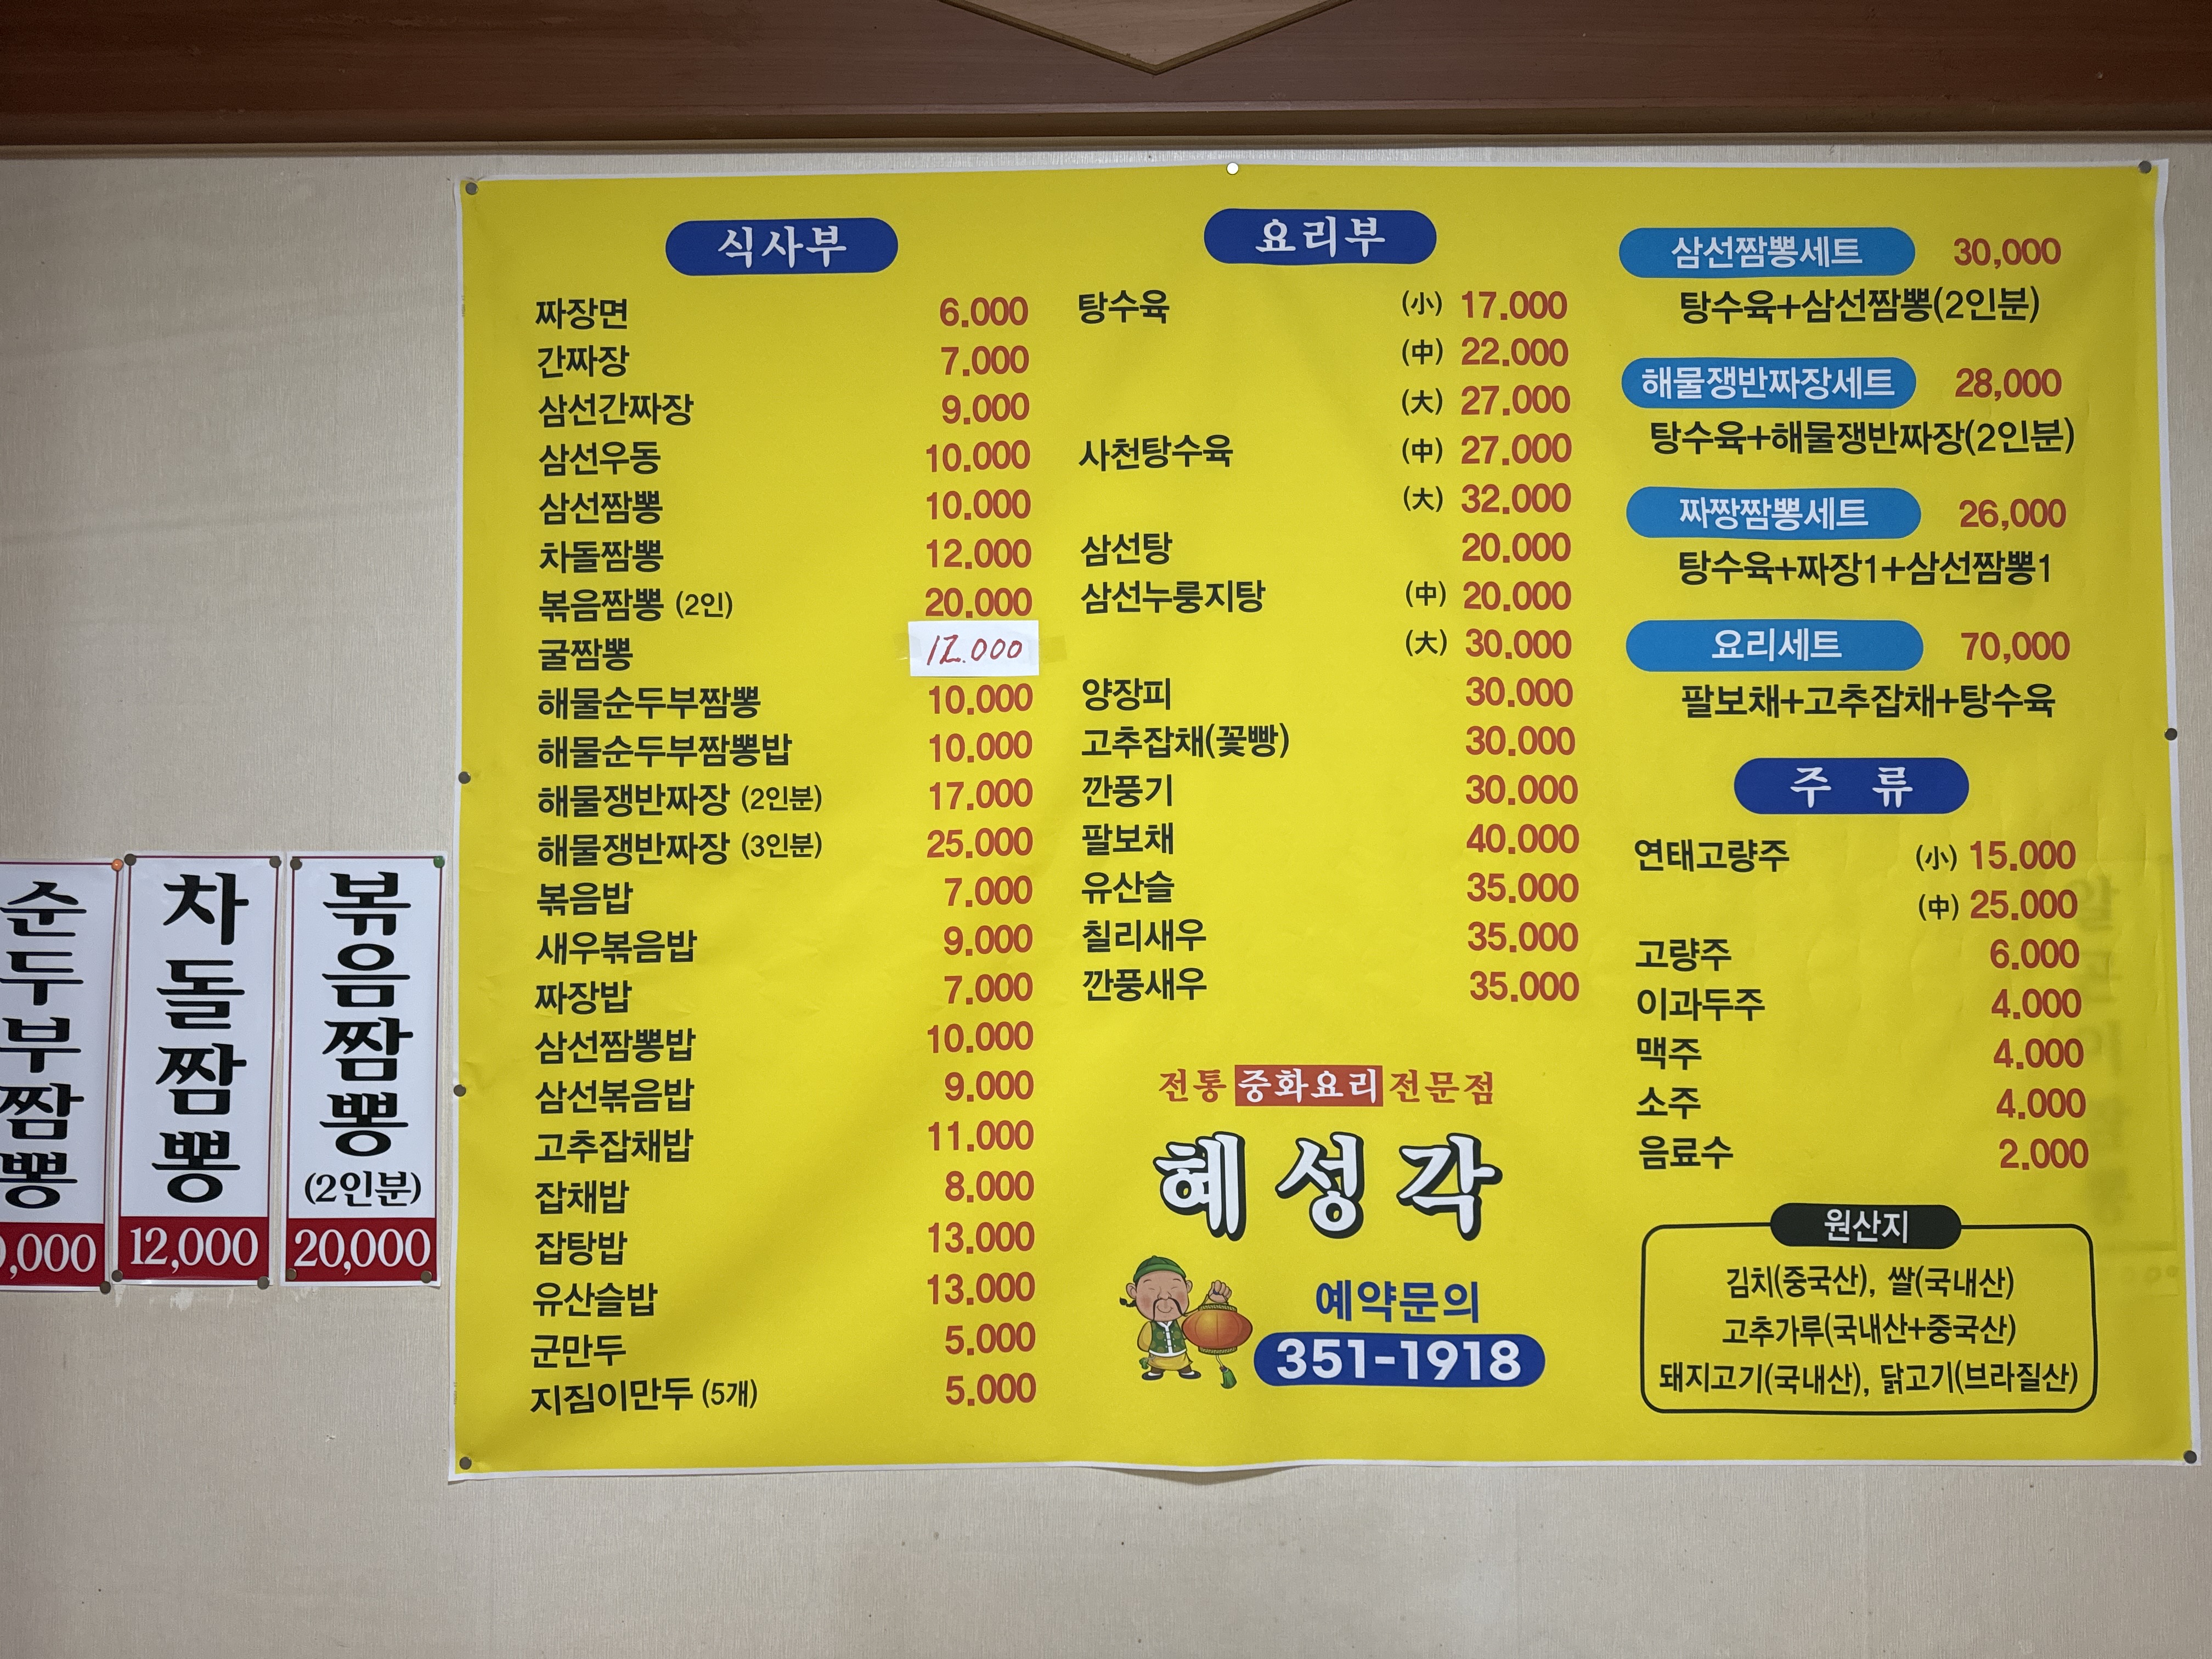 식사부
짜장면 6.000
간짜장 7.000
삼선간짜장 9.000
삼선우동 10.000
삼선짬뽕 10.000
차돌짬뽕 12.000
볶음짬뽕 (2인) 20.000
굴짬뽕 12.000
해물순두부짬뽕 10.000
해물순두부짬뽕밥 10.000
해물쟁반짜장 (2인분) 17.000
해물쟁반짜장 (3인분) 25.000
볶음밥 7.000
새우볶음밥 9.000
짜장밥 7.000
삼선짬뽕밥 10.000
삼선볶음밥 9.000
고추잡채밥 11.000
잡채밥 8.000
잡탕밥 13.000
유산슬밥 13.000
군만두 5.000
지짐이만두 (5개) 5.000
요리부
탕수육 (小) 17.000
(中) 22.000
(大) 27.000
사천탕수육 (中) 27.000
(大) 32.000
삼선탕 20.000
삼선누룽지탕 (中) 20.000
(大) 30.000
양장피 30.000
고추잡채(꽃빵) 30.000
깐풍기 30.000
팔보채 40.000
유산슬 35.000
칠리새우 35.000
깐풍새우 35.000
전통 중화요리 전문점
혜성각
예약문의
351-1918
삼선짬뽕세트 30,000
탕수육+삼선짬뽕(2인분)
해물쟁반짜장세트 28,000
탕수육+해물쟁반짜장(2인분)
짜짱짬뽕세트 26,000
탕수육+짜장1+삼선짬뽕1
요리세트 70,000
팔보채+고추잡채+탕수육
주 류
연태고량주 (小) 15.000
(中) 25.000
고량주 6.000
이과두주 4.000
맥주 4.000
소주 4.000
음료수 2.000
원산지
김치(중국산), 쌀(국내산)
고추가루(국내산+중국산)
돼지고기(국내산), 닭고기(브라질산)
순두부짬뽕
,000
차돌짬뽕
12,000
볶음짬뽕
(2인분)
20,000